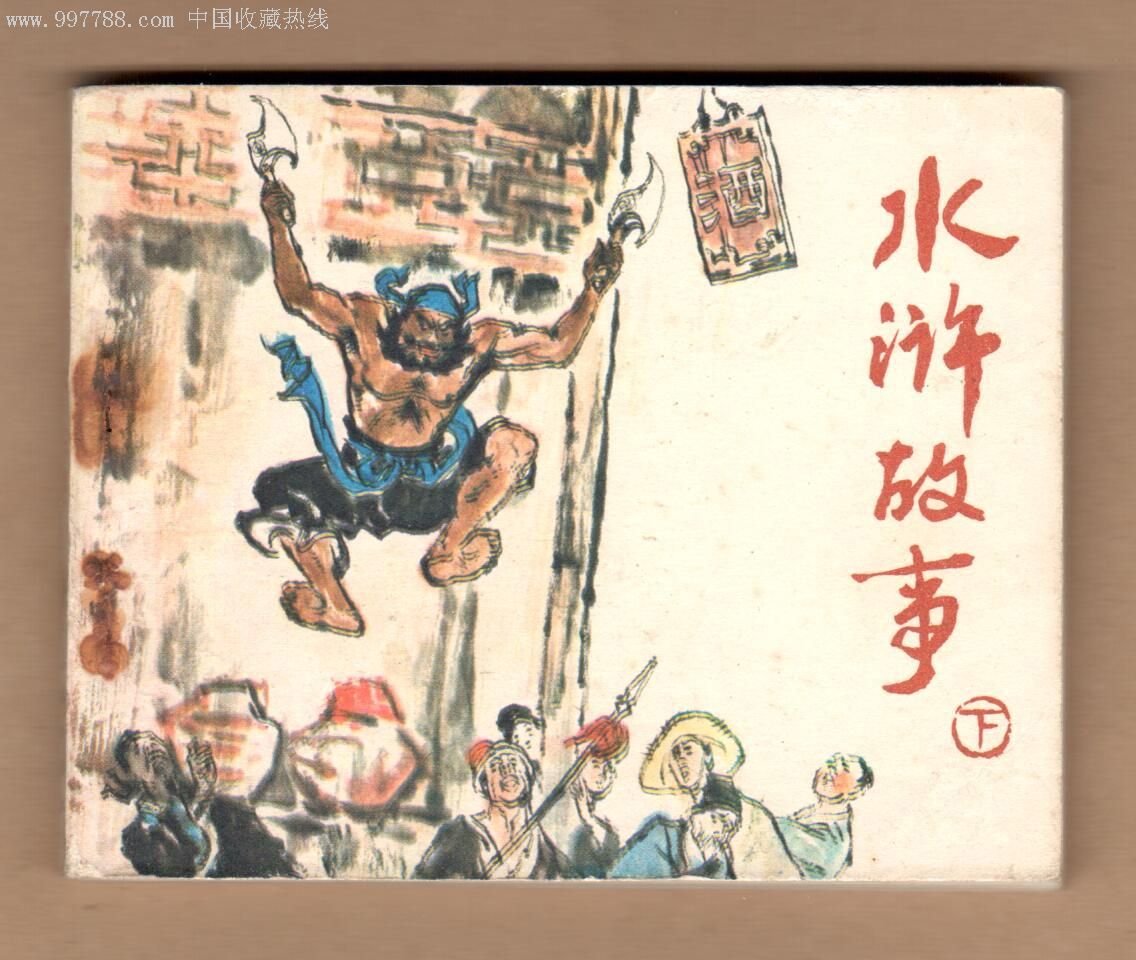 www.997788.com 中国收藏热线
酒
水浒故事
下